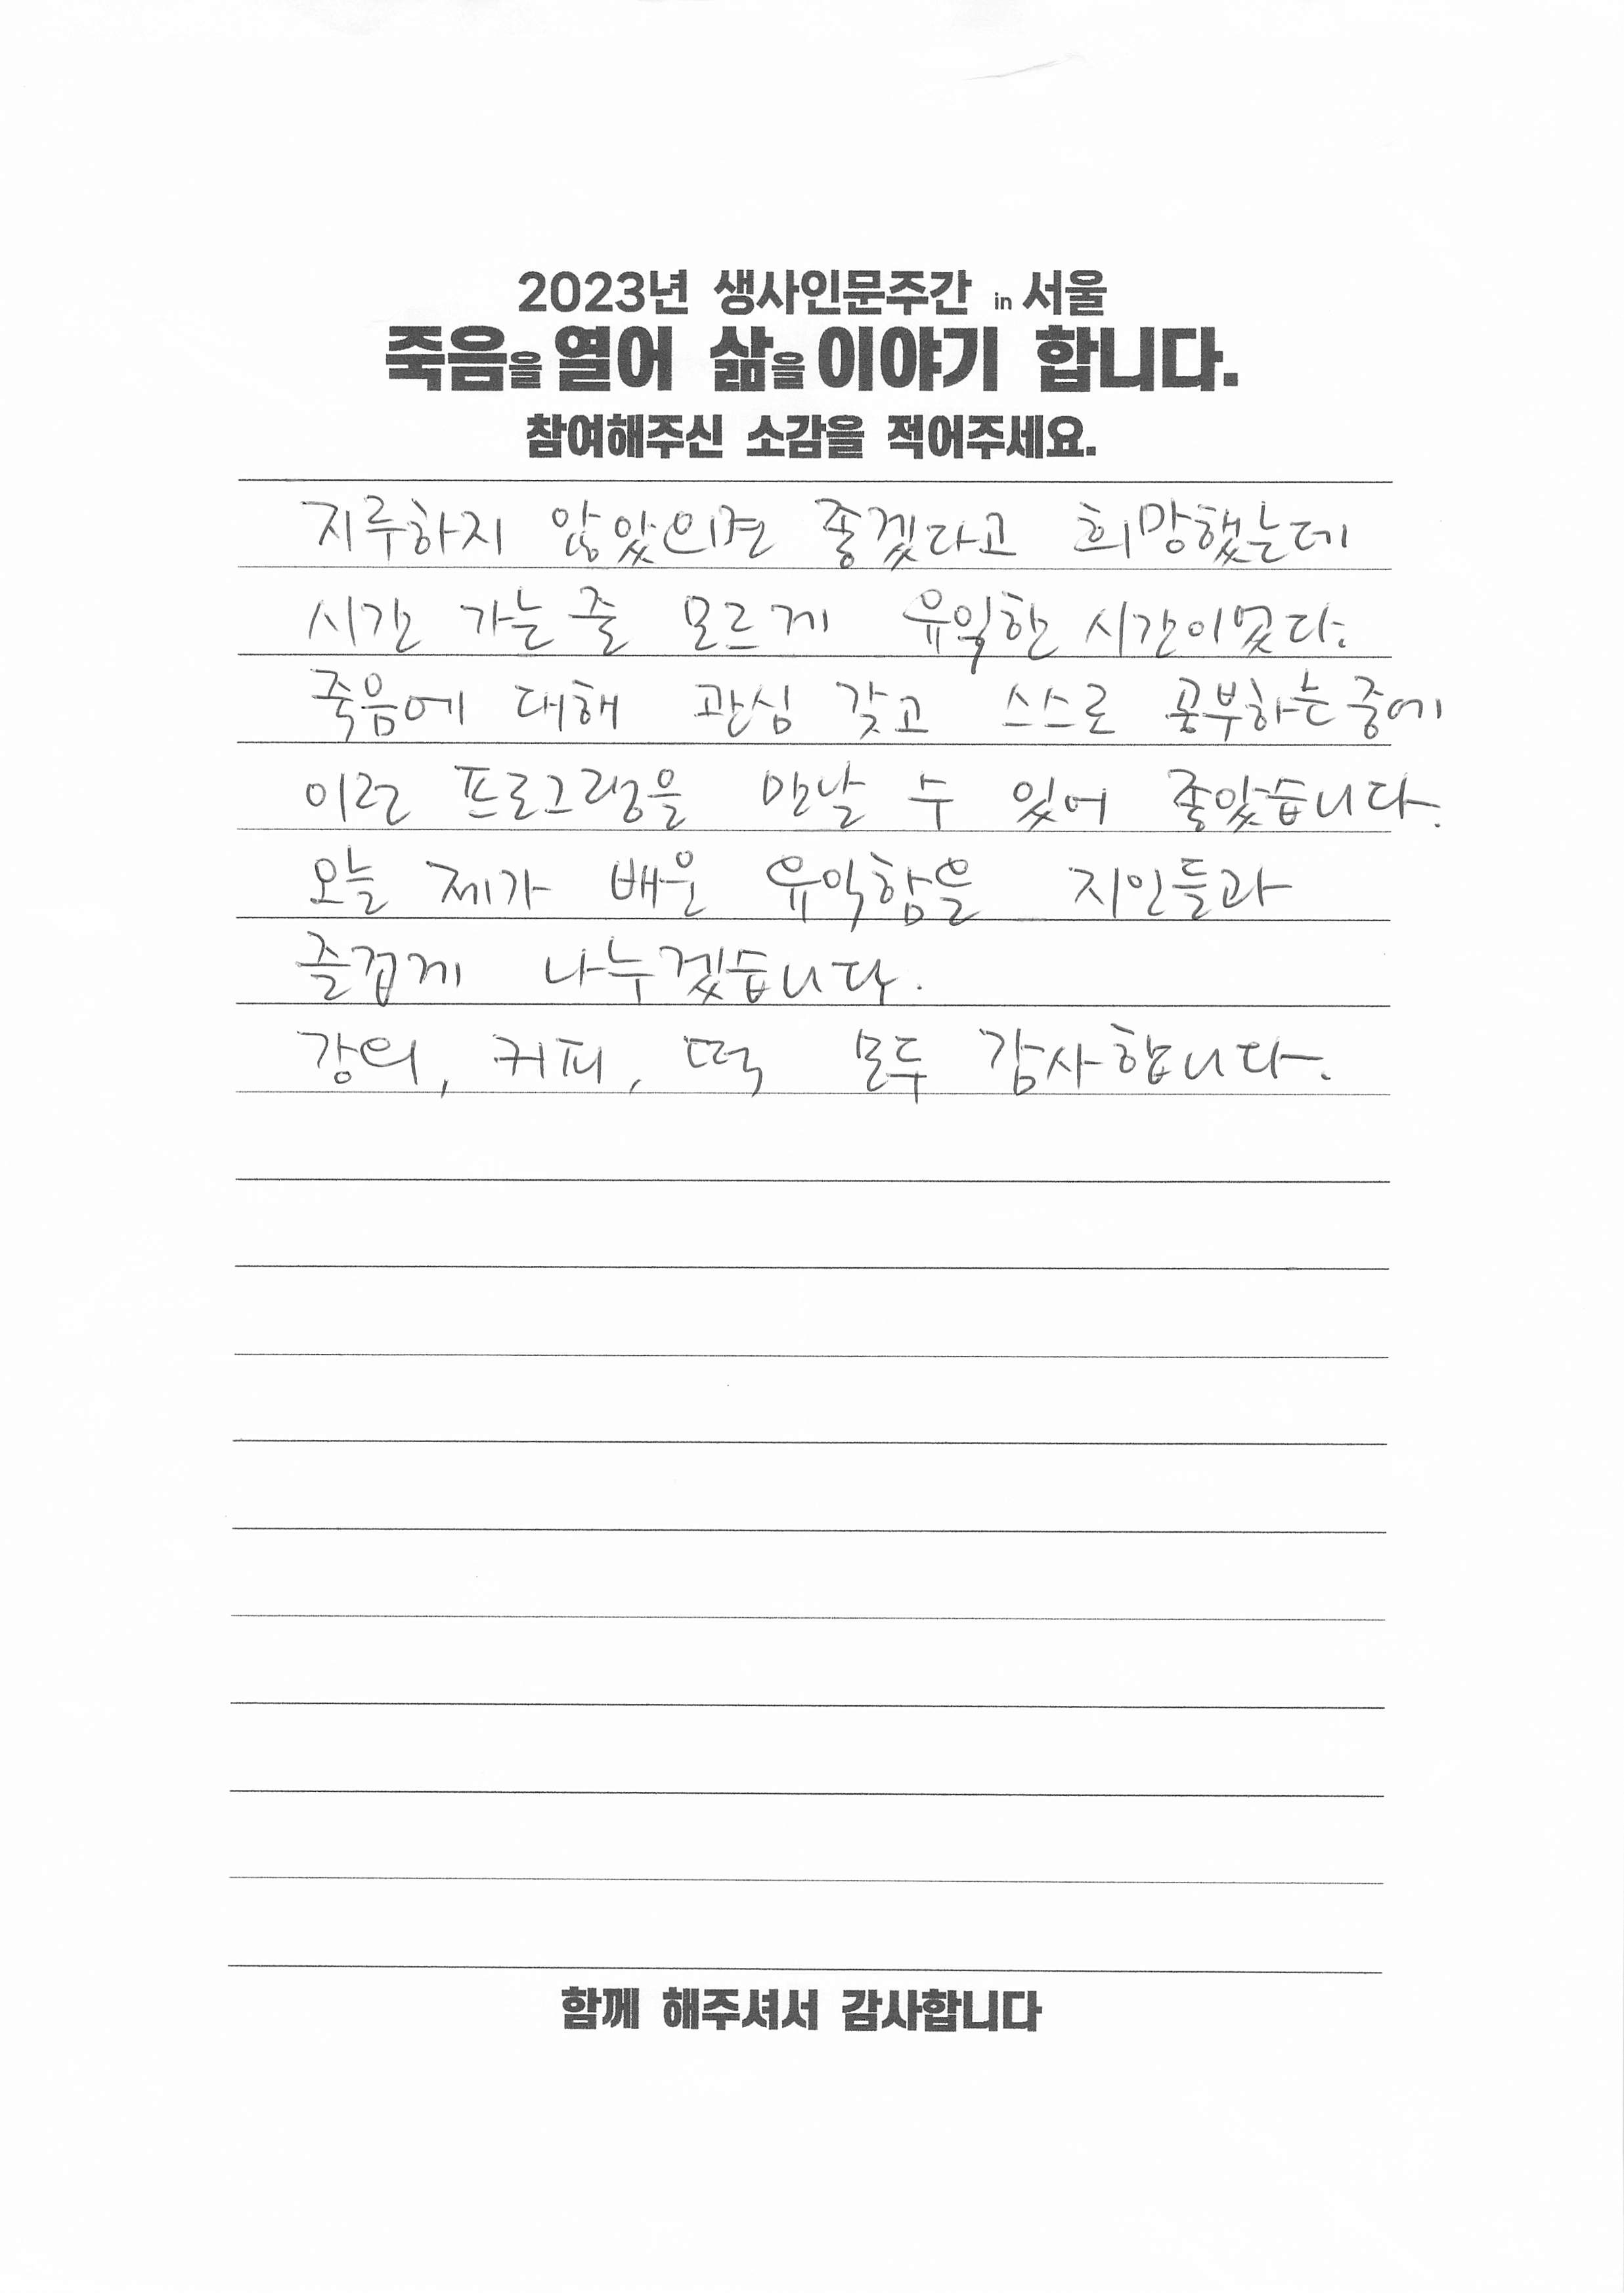 2023년 생사인문주간 in 서울
죽음을 열어 삶을 이야기 합니다.
참여해주신 소감을 적어주세요.
지루하지 않았으면 좋겠다고 희망했는데
시간 가는 줄 모르게 유익한 시간이었다.
죽음에 대해 관심 갖고 스스로 공부하는 중에
이런 프로그램을 만날 수 있어 좋았습니다.
오늘 제가 배운 유익함을 지인들과
즐겁게 나누겠습니다.
강의, 커피, 떡 모두 감사합니다.
함께 해주셔서 감사합니다